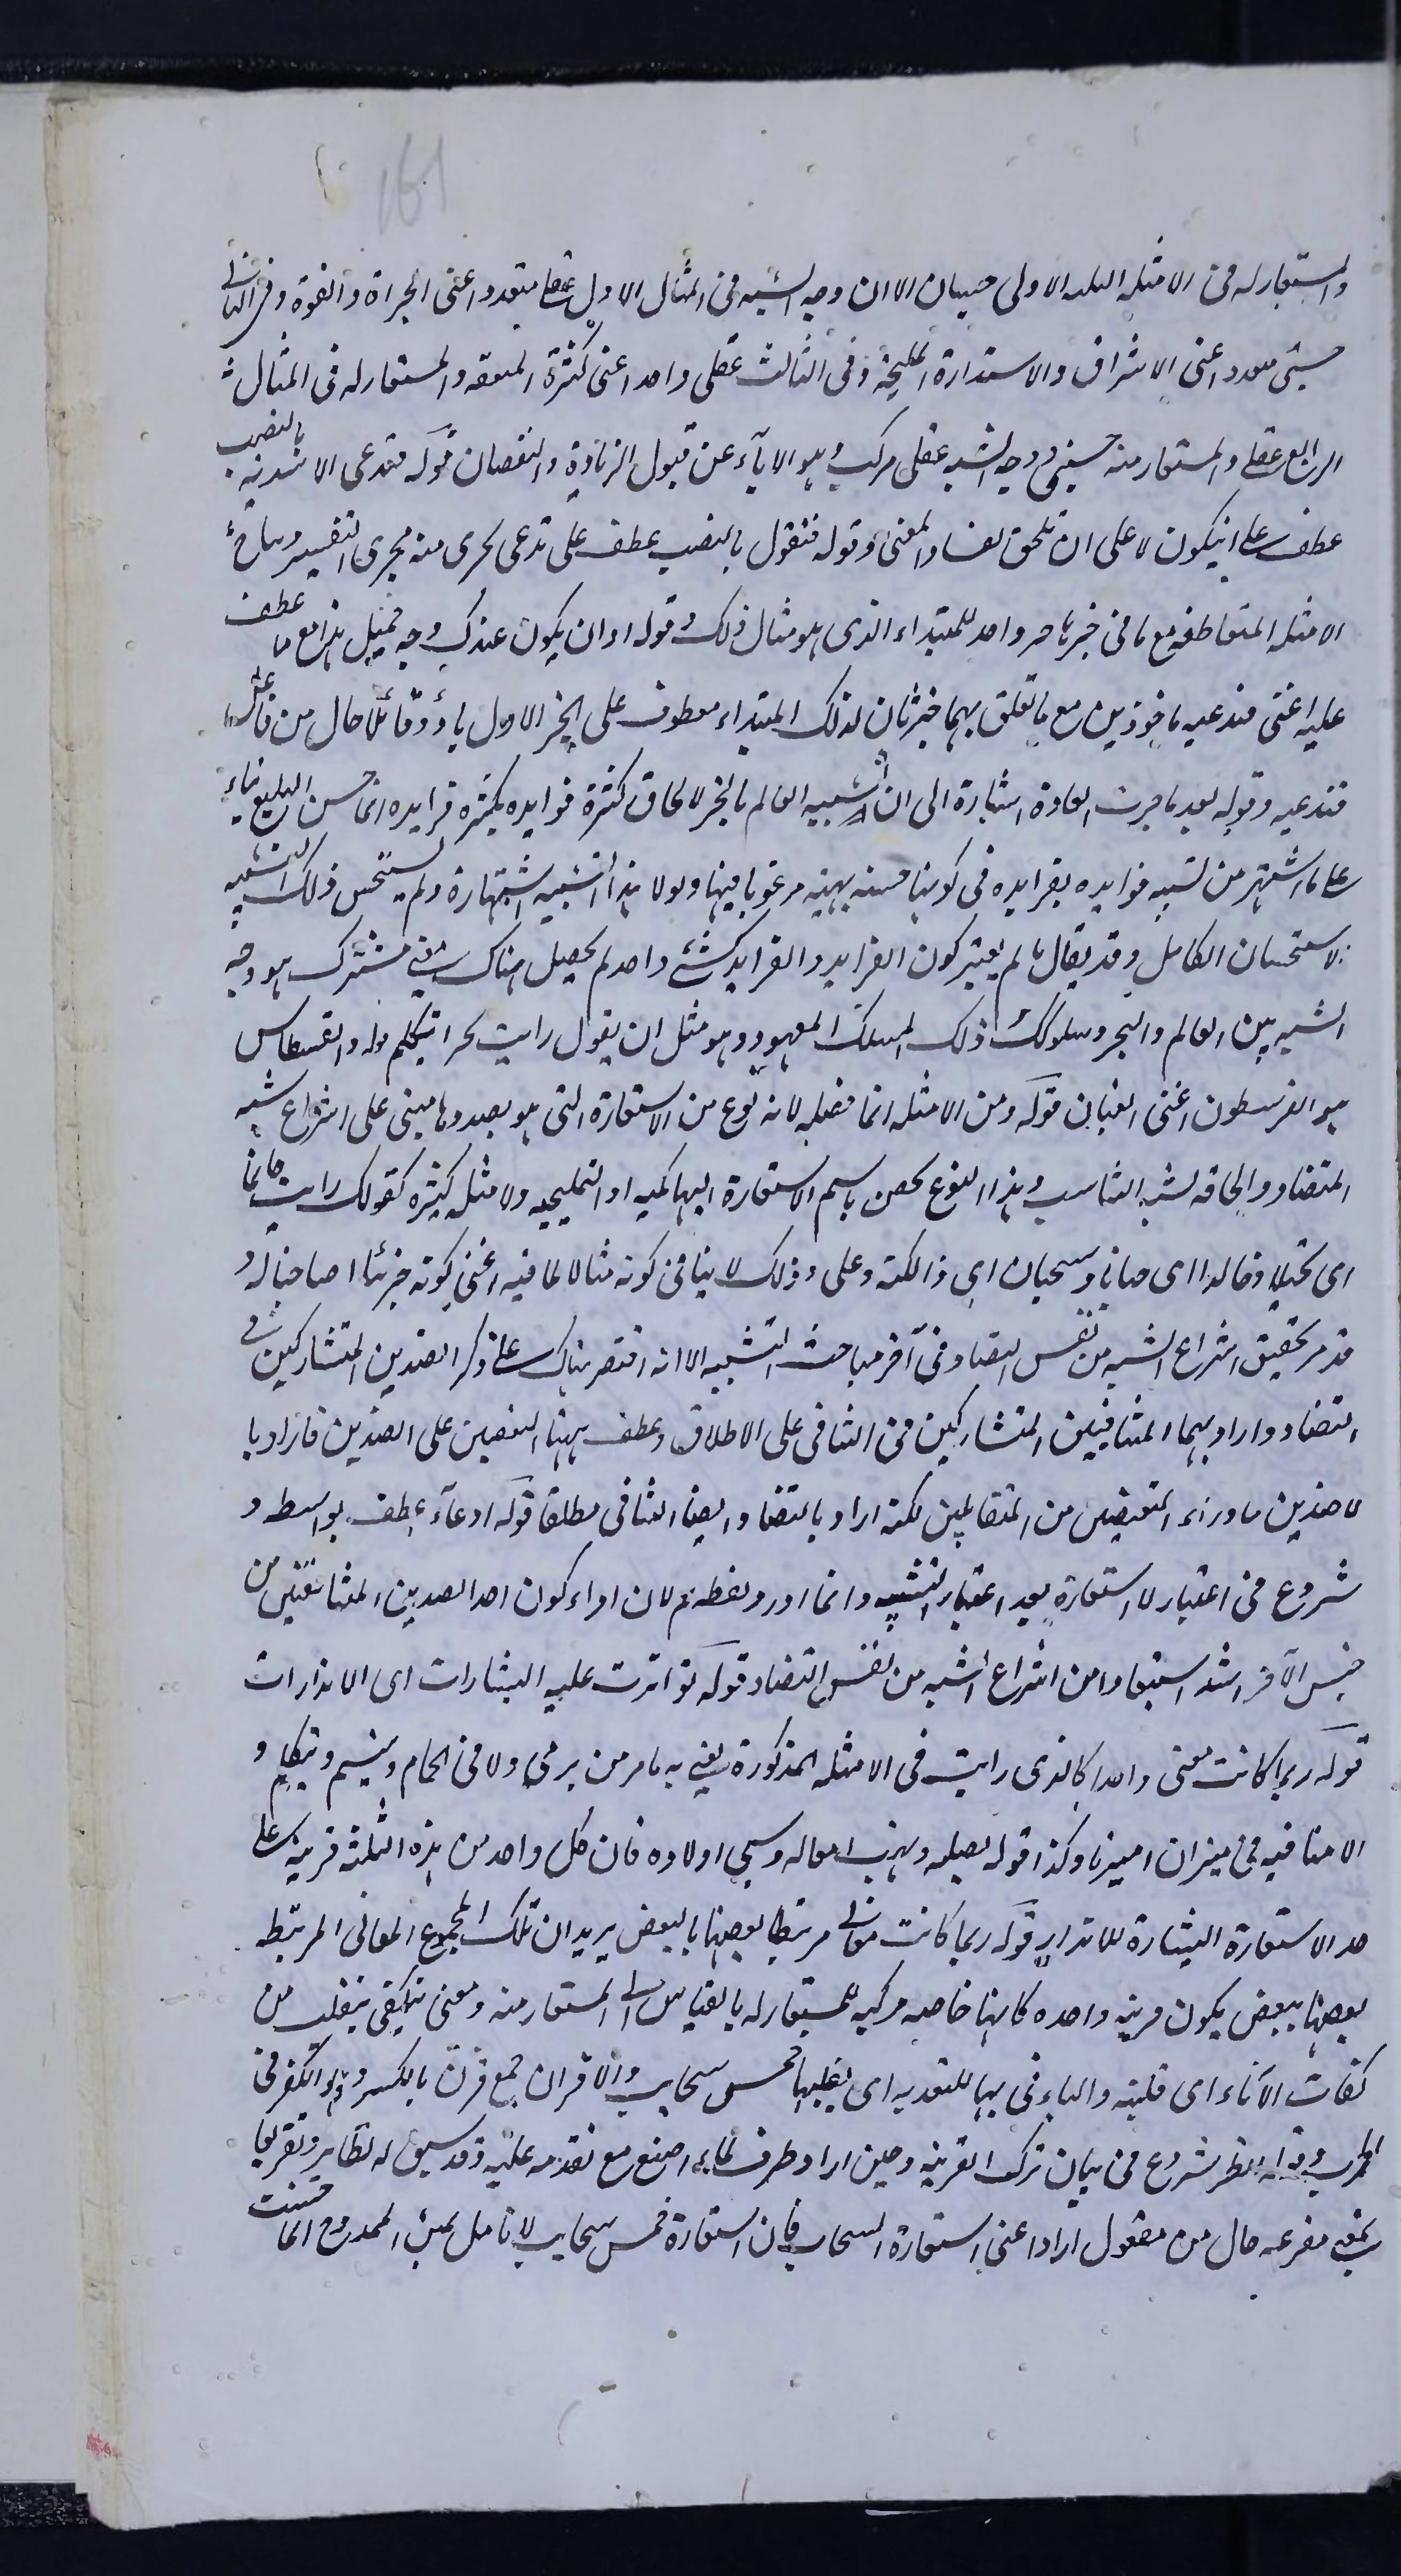 161
والمستعار له فى الامثلة الثلثة الاولى حسيان الا ان وجه الشبه فى المثال الاول عقلى متعدد اعنى الجراة والقوة وفى الثانى
حسى متعدد اعنى الاشراق والاستدارة المليحة وفى الثالث عقلى واحد اعنى كثرة المنفعة والمستعار له فى المثال
الرابع عقلى والمستعار منه حسى ووجه الشبه عقلى مركب وهو الاباء عن قبول الزيادة والنقصان قوله فتدعى الاسدية بالنصب
عطف على ان يكون لا على ان تلحق لفساد المعنى وقوله فتقول بالنصب عطف على تدعى يجرى منه مجرى التفسير وساير
الامثلة المتعاطفة مع ما فى خبرها خبر واحد للمبتداء الذى هو مثال ذلك وقوله او ان يكون عندك وجه جميل هذا مع ما عطف
عليه اعنى فتدعيه ماخوذين مع ما تعلق بهما خبر ثان لذلك المبتداء معطوف على الخبر الاول باو وقائلا حال من فاعل
فتدعيه وقوله بعد ما جرت العادة اشارة الى ان تشبيه العالم بالبحر لالحاق كثرة فوايده بكثرة فرايده انما حسن البليغ بناء
على ما اشتهر من تشبيه فوايده بفرايده فى كونها حسنة بهية مرغوبا فيها ولولا هذا التشبيه اشتهاره ولم يستحسن ذلك التشبيه
الاستحسان الكامل وقد يقال ما لم يعتبر كون الفرايد والفوايد كشئ واحد لم يحصل هناك شئ مشترك هو وجه
الشبه بين العالم والبحر وسلوك ذلك المسلك المعهود وهو مثل ان يقول رايت بحرا يتكلم قوله والقسطاس
هو القرسطون اعنى القبان قوله ومن الامثلة انما فصله لانه نوع من الاستعارة التى هو بصددها مبنى على انتزاع شبه
المتضاد والحاقه لشبه التناسب وهذا النوع يخص باسم الاستعارة التهكمية او التمليحية والامثلة كثيرة كقولك رايت حاتما
اى بخيلا وخالدا اى جبانا وسحبان اى ذا لكنة وعلى ذلك لا ينافى كونه مثالا لما فيه اعنى كونه جزئيا
قد مر تحقيق انتزاع الشبه من نفس التضاد فى آخر مباحث التشبيه الا انه اقتصر هناك على ذكر الضدين المتشاركين فى
التضاد واراد بهما المتنافيين المتشاركين فى التنافى على الاطلاق وعطف ههنا النقيضين على الضدين فاراد با
لضدين ما وراء النقيضين من المتقابلين لكنه اراد بالتضاد ايضا التنافى مطلقا قوله ادعاء عطف بواسطة و
شروع فى اعتبار الاستعارة بعد اعتبار التشبيه وانما اورد لفظة ثم لان ادعاء كون احد الضدين المتنافيين من
جنس الآخر اشد استبعادا من انتزاع الشبه من نفس التضاد قوله تواترت عليه البشارات اى الانذارات
قوله ربما كانت معنى واحدا كالذى رايت فى الامثلة المذكورة يعنى به ما مر من يرمى ولا فى الحمام ويتبسم ويتكلم و
الا منافية فى ميزان وكذا قوله بقتله ونهب امواله وسبى اولاده فان كل واحد من هذه الثلثة قرينة على
حد الاستعارة البشارة للانذار قوله ربما كانت معانى مرتبطا بعضها بالبعض يريد ان تلك المجموع المعانى المرتبطة
بعضها ببعض يكون قرينة واحدة كانها خاصة مركبة للمستعار له بالقياس الى المستعار منه ومعنى تنكفى تنقلب من
كفات الآناء اى قلبته والباء فى بها للتعدية اى يقلبها خمس سحايب والاقران جمع قرن بالكسر وهو الكفو فى
الحرب وقوله انظر شروع فى بيان ترك القرينة وحين اراد ظرف لما صنع مع تقدمه عليه وقد سبق له نظاير وتفريعا
بمعنى مفرعه حال من مفعول اراد اعنى استعارة السحاب فان استعارة خمس سحايب لانامل يمين الممدوح انما حسنت